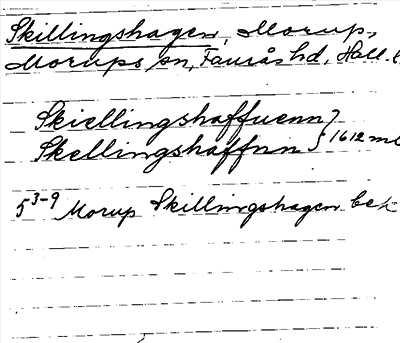 Skillingshagen, Morup,
Morups sn, Faurås hd, Hall. l
Skiellingshaffuenn }
Skellingshaffnn } 1612 ml
5 3-9 Morup Skillingshagen bek